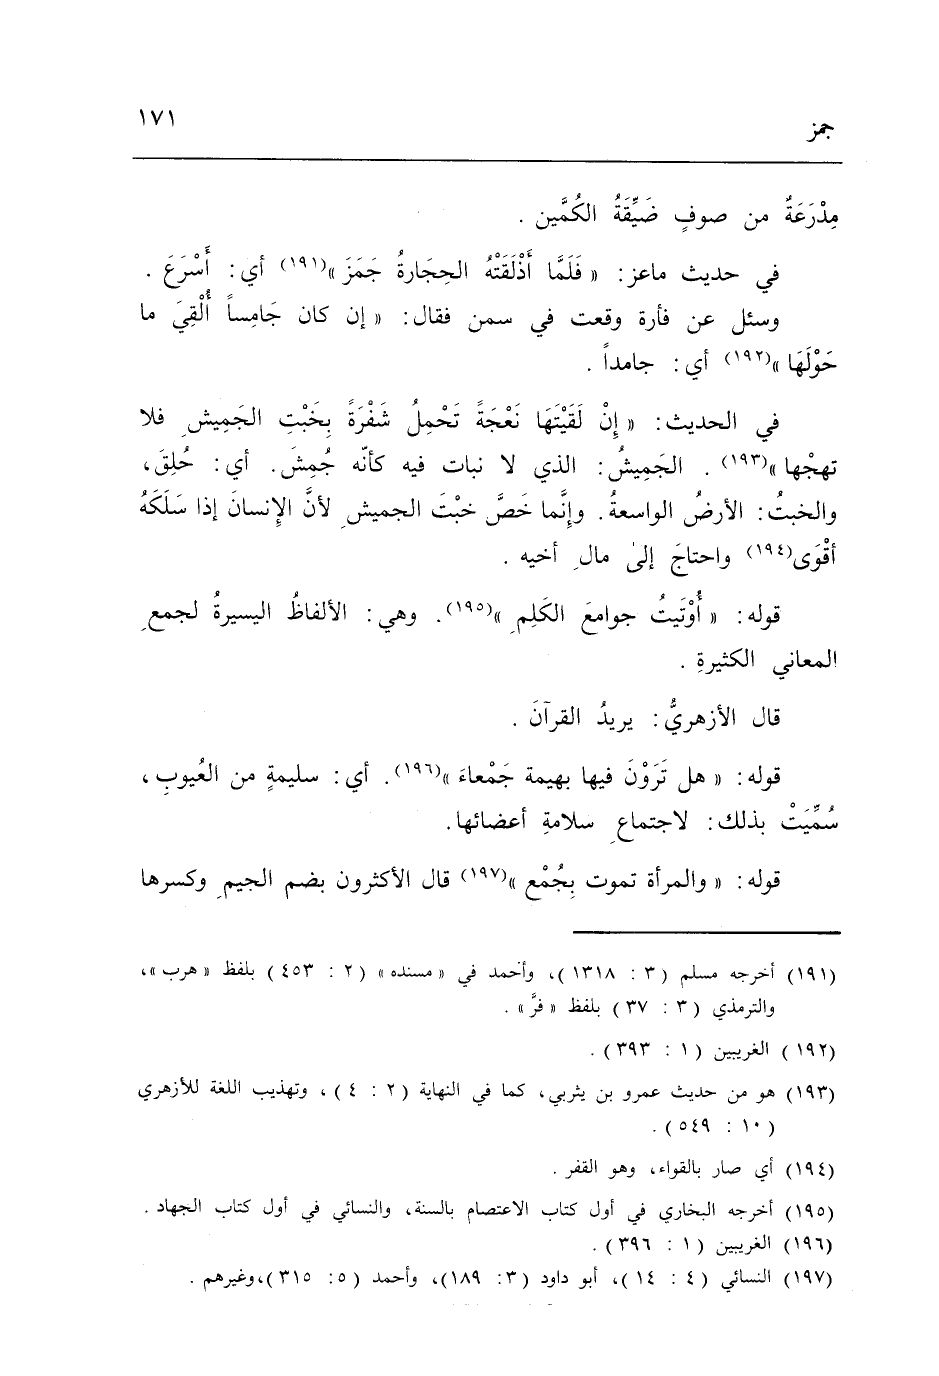 جمز ١٧١
مِدْرَعَةٌ من صوفٍ ضَيِّقَةُ الكُمَّين .
في حديث ماعز: « فَلَمَّا أَذْلَقَتْهُ الحِجَارةُ جَمَزَ »(١٩١) أي: أَسْرَعَ .
وسئل عن فأرة وقعت في سمن فقال: « إن كان جَامِساً أُلْقِيَ ما
حَوْلَهَا »(١٩٢) أي: جامداً .
في الحديث: « إِنْ لَقَيْتَهَا نَعْجَةً تَحْمِلُ شَفْرَةً بِخَبْتِ الجَمِيشِ فلا
تهجْها »(١٩٣) . الجَمِيشُ: الذي لا نبات فيه كأنّه جُمِشَ. أي: حُلِقَ،
والخبتُ: الأرضُ الواسعةُ. وإِنَّما خَصَّ خبْتَ الجميشِ لأنَّ الإِنسانَ إذا سَلَكَهُ
أقْوَى(١٩٤) واحتاجَ إلىٰ مالِ أخيه .
قوله: « أُوْتَيتُ جوامعَ الكَلِمِ »(١٩٥). وهي: الألفاظُ اليسيرةُ لجمعِ
المعاني الكثيرةِ .
قال الأزهريُّ: يريدُ القرآنَ .
قوله: « هل تَرَوْنَ فيها بهيمة جَمْعاءَ »(١٩٦). أي: سليمةٍ من العُيوبِ،
سُمِّيَتْ بذلك: لاجتماعِ سلامةِ أعضائها.
قوله: « والمرأة تموت بِجُمْع »(١٩٧) قال الأكثرون بضم الجيمِ وكسرها
(١٩١) أخرجه مسلم (٣ : ١٣١٨)، وأحمد في «مسنده» (٢ : ٤٥٣) بلفظ « هرب »،
والترمذي (٣ : ٣٧) بلفظ « فرَّ» .
(١٩٢) الغريبين (١ : ٣٩٣) .
(١٩٣) هو من حديث عمرو بن يثربي، كما في النهاية (٢ : ٤) ، وتهذيب اللغة للأزهري
(١٠ : ٥٤٩) .
(١٩٤) أي صار بالقواء، وهو القفر .
(١٩٥) أخرجه البخاري في أول كتاب الاعتصام بالسنة، والنسائي في أول كتاب الجهاد .
(١٩٦) الغريبين (١ : ٣٩٦) .
(١٩٧) النسائي (٤ : ١٤)، أبو داود (٣: ١٨٩)، وأحمد (٥: ٣١٥)،وغيرهم .